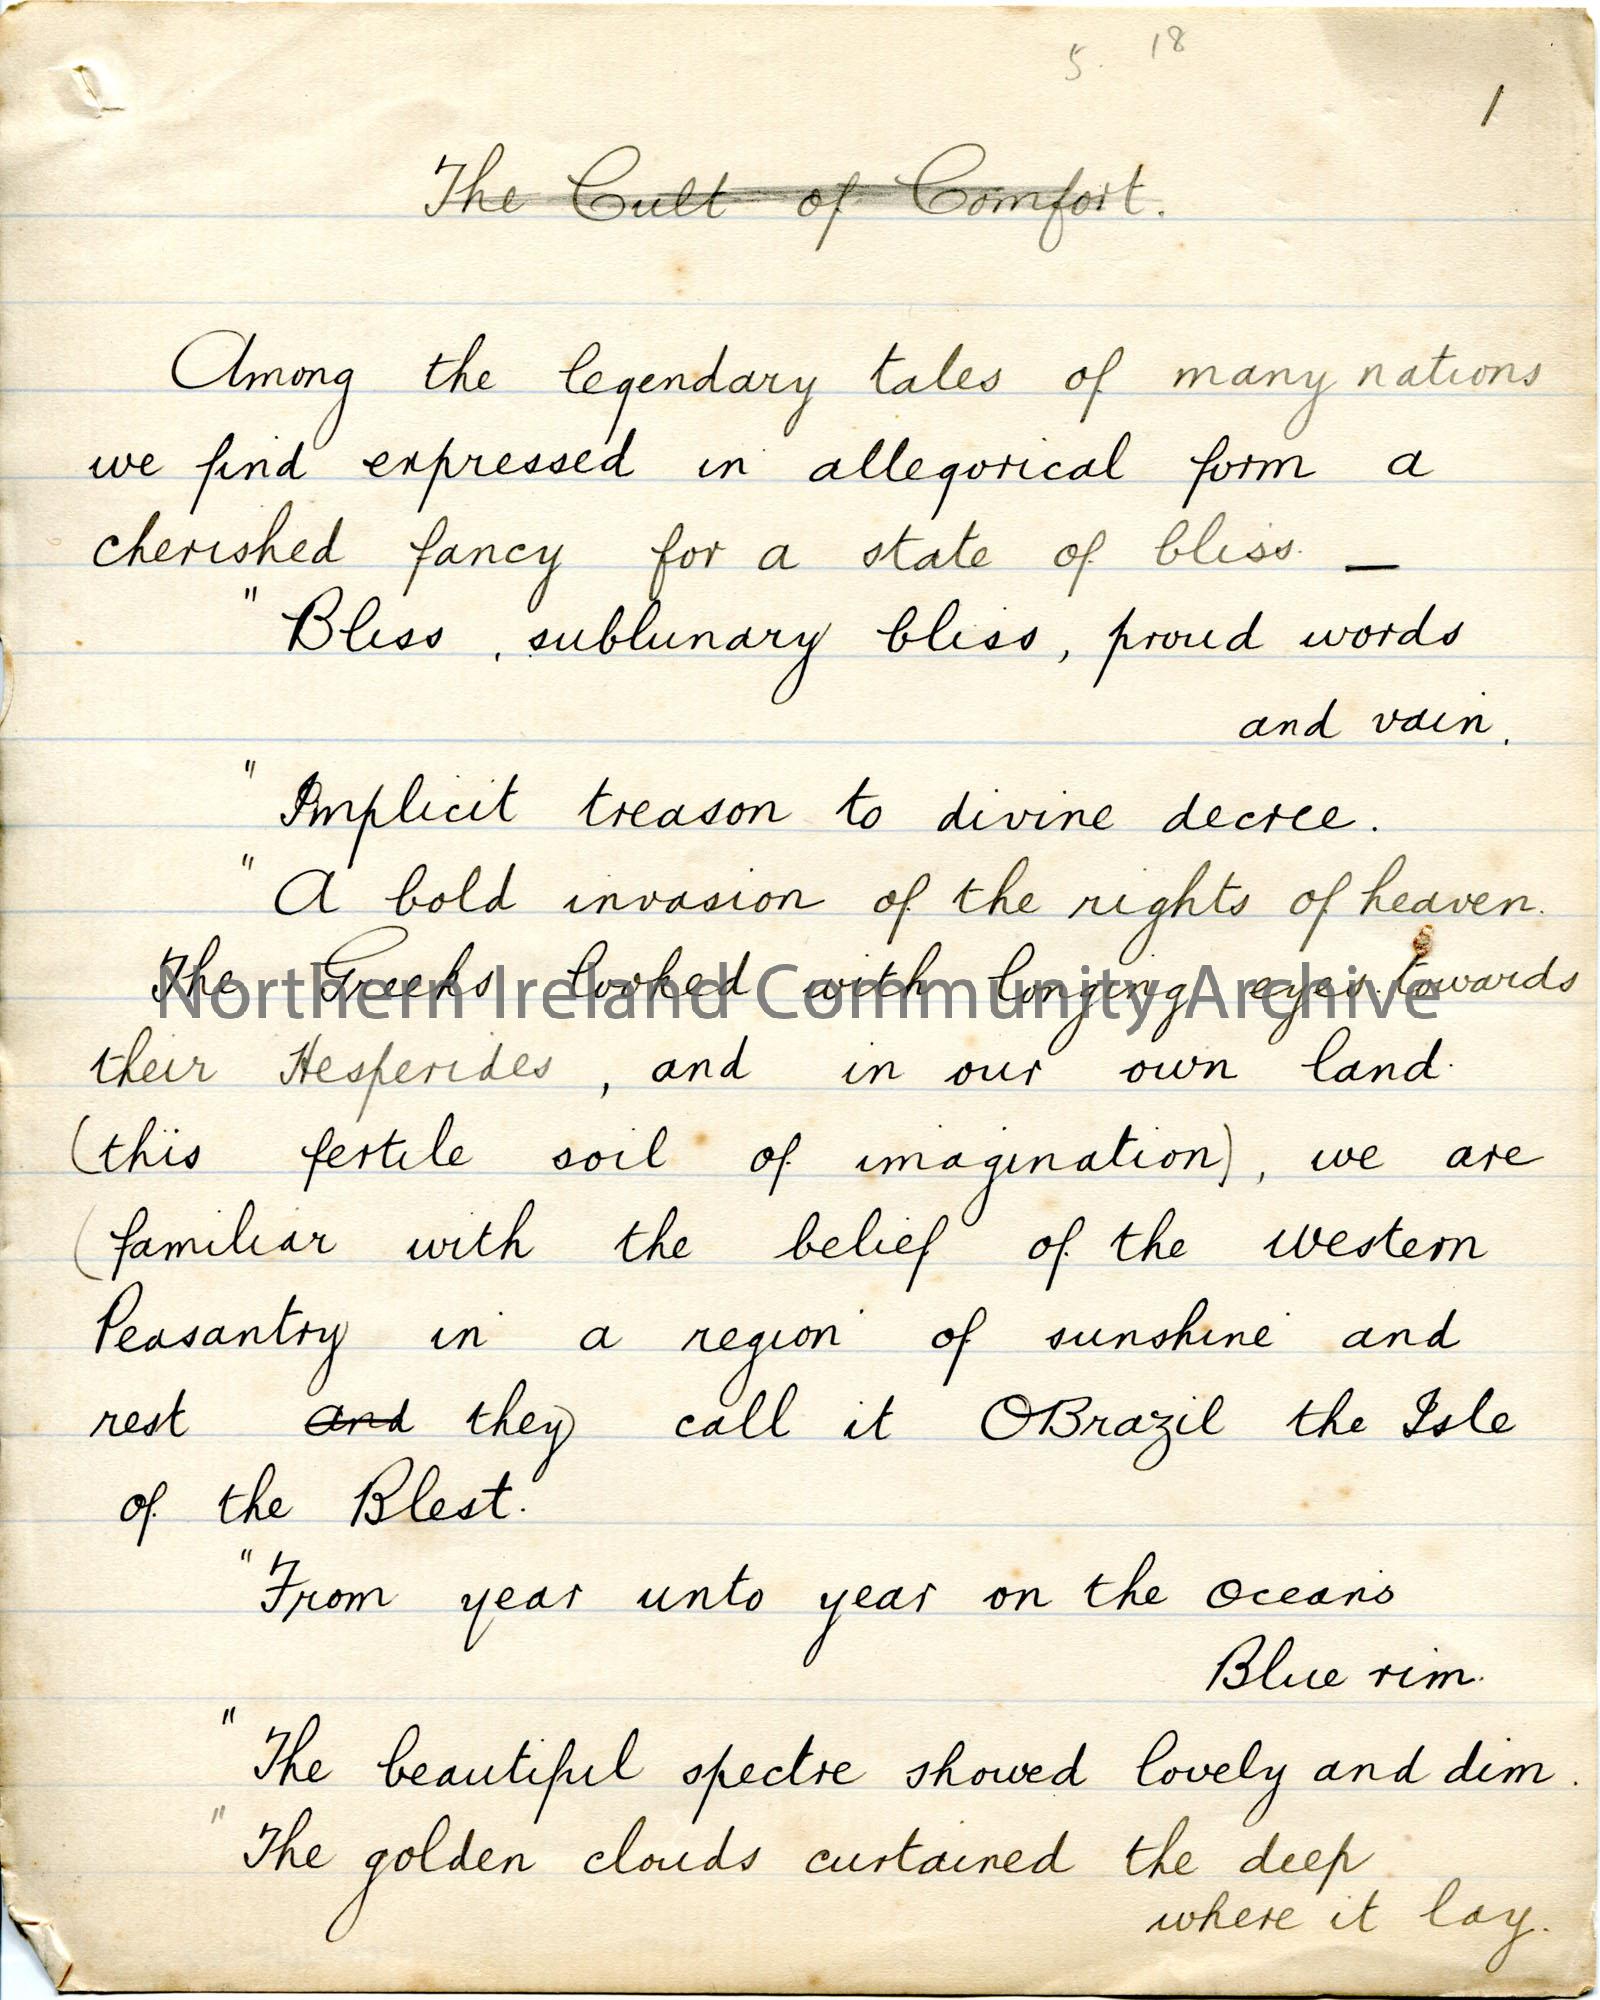 5. 18
1
The Cult of Comfort.
Among the legendary tales of many nations
we find expressed in allegorical form a
cherished fancy for a state of bliss. —
" Bliss, sublunary bliss, proud words
and vain.
" Implicit treason to divine decree.
" A bold invasion of the rights of heaven.
The Greeks looked with longing eyes towards
Northern Ireland Community Archive
their Hesperides, and in our own land.
(this fertile soil of imagination), we are
(familiar with the belief of the western
Peasantry in a region of sunshine and
rest and they call it OBrazil the Isle
of the Blest.
"From year unto year on the Oceans
Blue rim.
"The beautiful spectre showed lovely and dim.
"The golden clouds curtained the deep
where it lay.